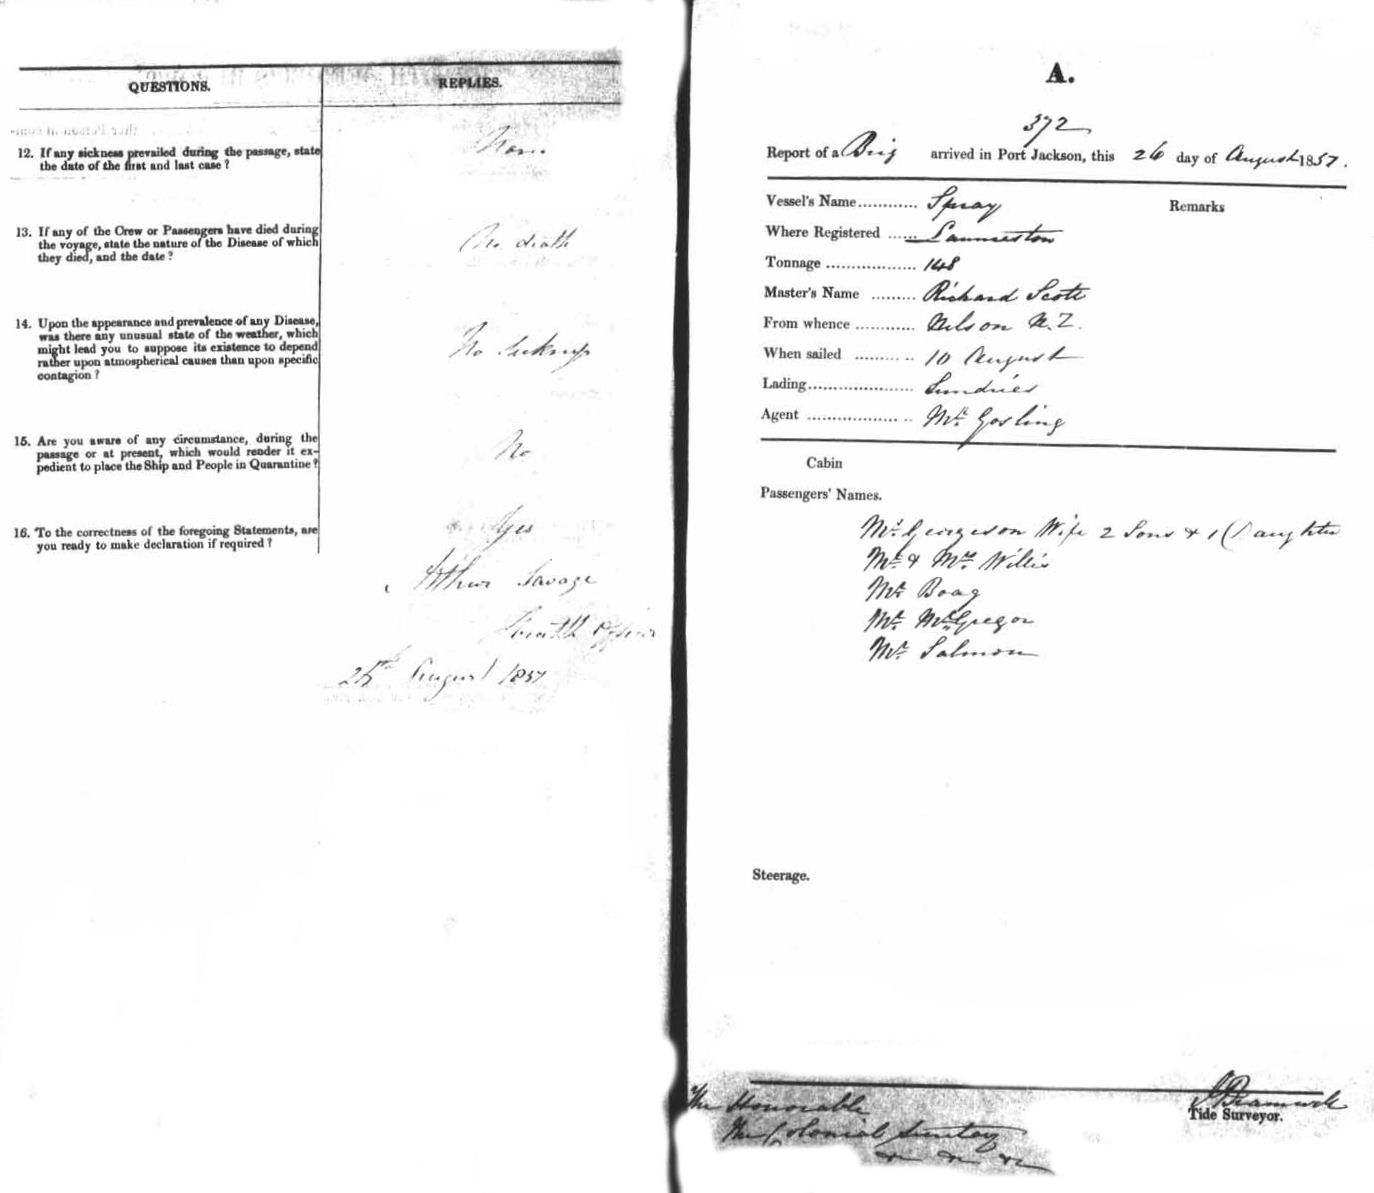 QUESTIONS.
REPLIES.
12. If any sickness prevailed during the passage, state
the date of the first and last case?
None
13. If any of the Crew or Passengers have died during
the voyage, state the nature of the Disease of which
they died, and the date?
No death
14. Upon the appearance and prevalence of any Disease,
was there any unusual state of the weather, which
might lead you to suppose its existence to depend
rather upon atmospherical causes than upon specific
contagion?
No sickness
15. Are you aware of any circumstance, during the
passage or at present, which would render it ex-
pedient to place the Ship and People in Quarantine?
No
16. To the correctness of the foregoing Statements, are
you ready to make declaration if required?
Yes
Arthur Savage
Health Officer
August 1857
A.
372
Report of a Brig arrived in Port Jackson, this 26 day of August 1857.
Vessel's Name............ Spray
Remarks
Where Registered ...... Launceston
Tonnage .................. 148
Master's Name ......... Richard Scott
From whence ............ Nelson N.Z.
When sailed ........... 10 August
Lading..................... Sundries
Agent .................... Mr. Gosling
Cabin
Passengers' Names.
Mr. Georgeson Wife 2 Sons & 1 Daughter
Mr. & Mrs. Willis
Mr. Boag
Mr. McGregor
Mr. Salmon
Steerage.
J Bramwell
Tide Surveyor.
The Honorable
The Colonial Secretary
&c &c &c